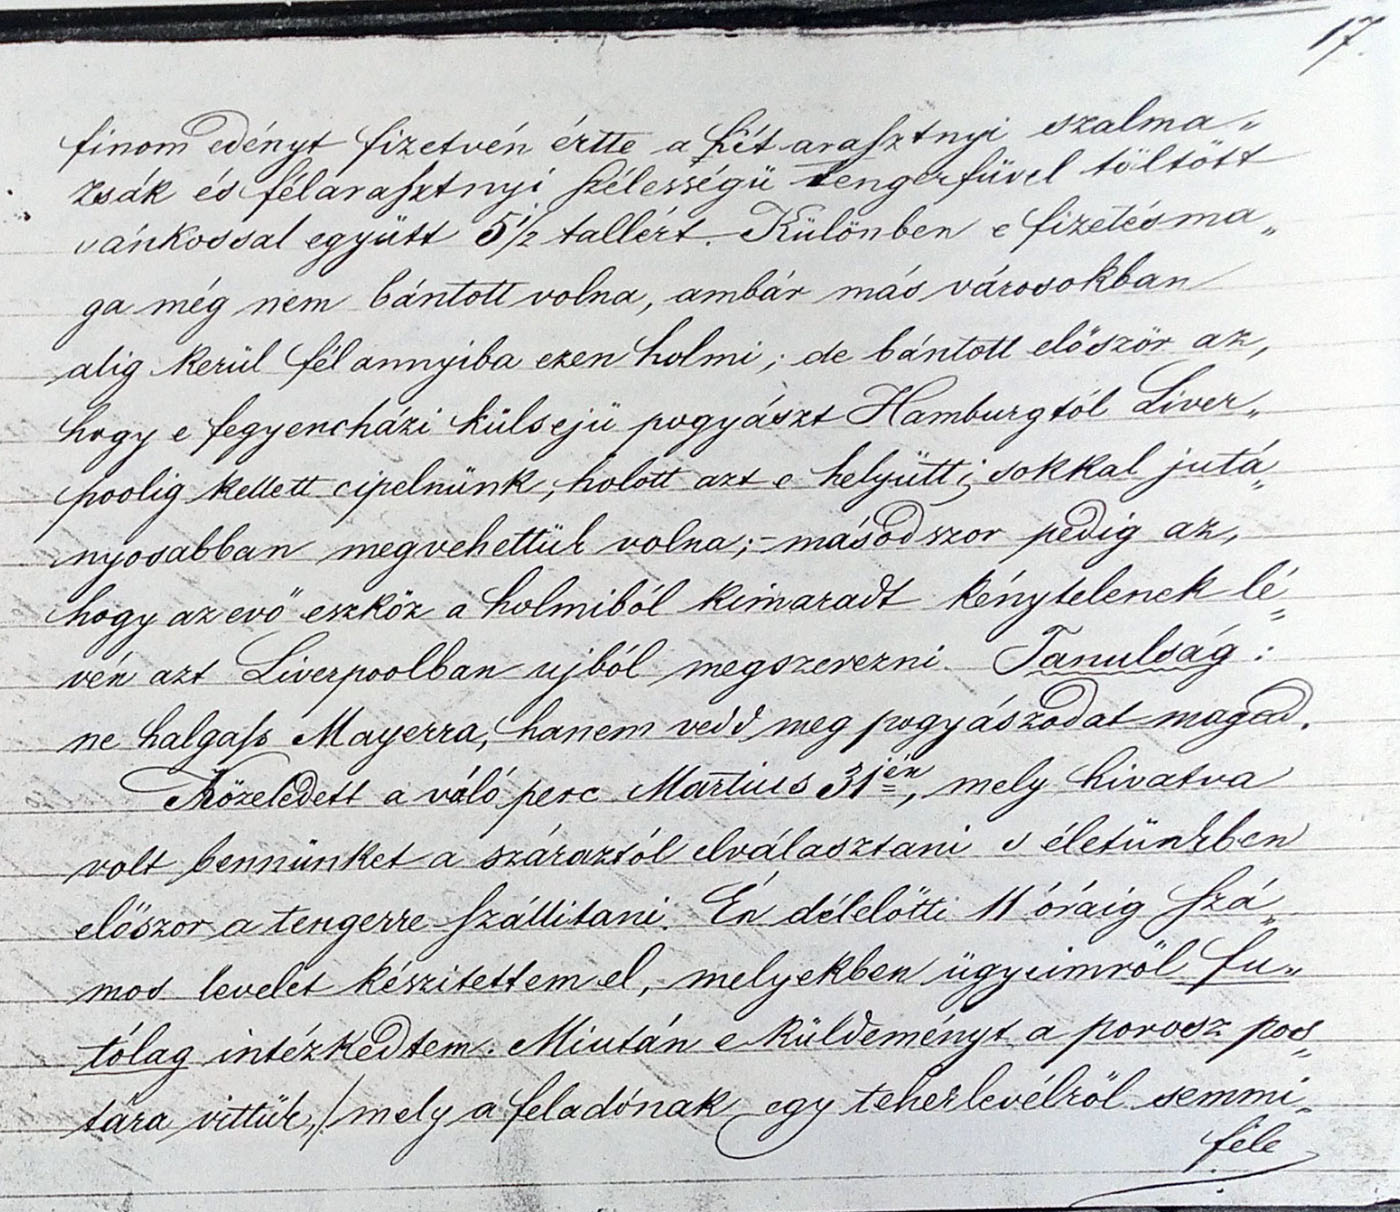 17.
finom edényt fizetvén értte a két arasztnyi szalma„
zsák és félarasztnyi szélességü tengerfüvel töltött
vánkossal együtt 5 1/2 tallért. Különben e fizetés ma„
ga még nem bántott volna, ambár más városokban
alig kerül fél annyiba ezen holmi; de bántott először az,
hogy e fegyencházi külsejü pogyászt Hamburgtól Liver„
poolig kellett cipelnünk, holott azt e helyütt is sokkal jutá„
nyosabban megvehettük volna; – másodszor pedig az,
hogy az evő eszköz a holmiból kimaradt kénytelenek lé„
vén azt Liverpoolban ujból megszerezni. Tanulság:
ne halgass Mayerra, hanem vedd meg pogyászodat magad.
Közeledett a váló perc Martius 31jén, mely hivatva
volt bennünket a száraztól elválasztani s életünkben
előszor a tengerre szállitani. Én délelötti 11 óráig szá„
mos levelet készitettem el, melyekben ügyeimről fu„
tólag intézkedtem. Miután e küldeményt a porosz pos„
tára vittük, / mely a feladónak egy teherlevélről semmi„
féle